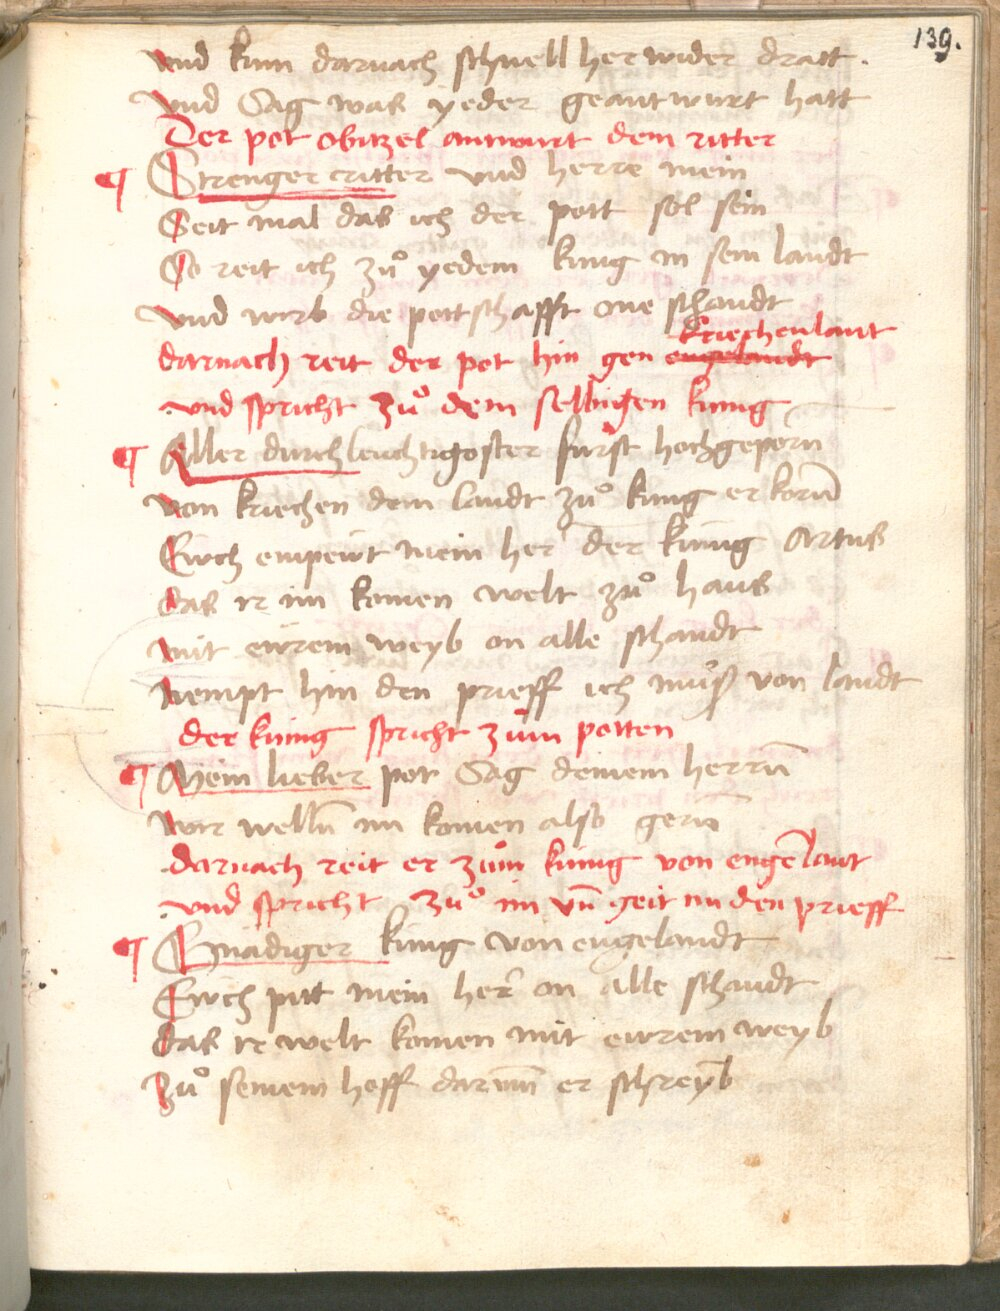 139.
vnd kum darnach schnell her wider dratt .
vnd Sag was yeder geantwurt hatt
Der pot obitzel antwurt dem ritter
¶ Strenger ritter vnd herre mein
Seit mal das ich der pott sol sein
So reit ich zuͦ yedem kunig in sein landt
vnd wirb die pottschafft one schandt
kriechenlant
darnach reit der pot hin gen engelandt
vnd spricht zuͦ dem selbigen kunig
¶ Aller durchleuchtigoster furst hochgeporn̄
von kriechen dem landt zuͦ kunig erkorn̄
Ewch empewt mein her der kunig Artus
das ir im komen welt zuͦ haus
mit ewrem weyb on alle schandt
nempt hin den prieff ich muͦß von landt
der kunig spricht zum potten
¶ Mein lieber pot Sag deinem herrn̄
wir welln̄ im komen also gern
darnach reit er zum kunig von engelant
vnd spricht zuͦ im vn̄ geit im den prieff
¶ Gnadiger kunig von engelandt
Ewch pitt mein her on alle schandt
das ir welt komen mit ewrem weyb
zuͦ seinem hoff darum̄ er schreyb